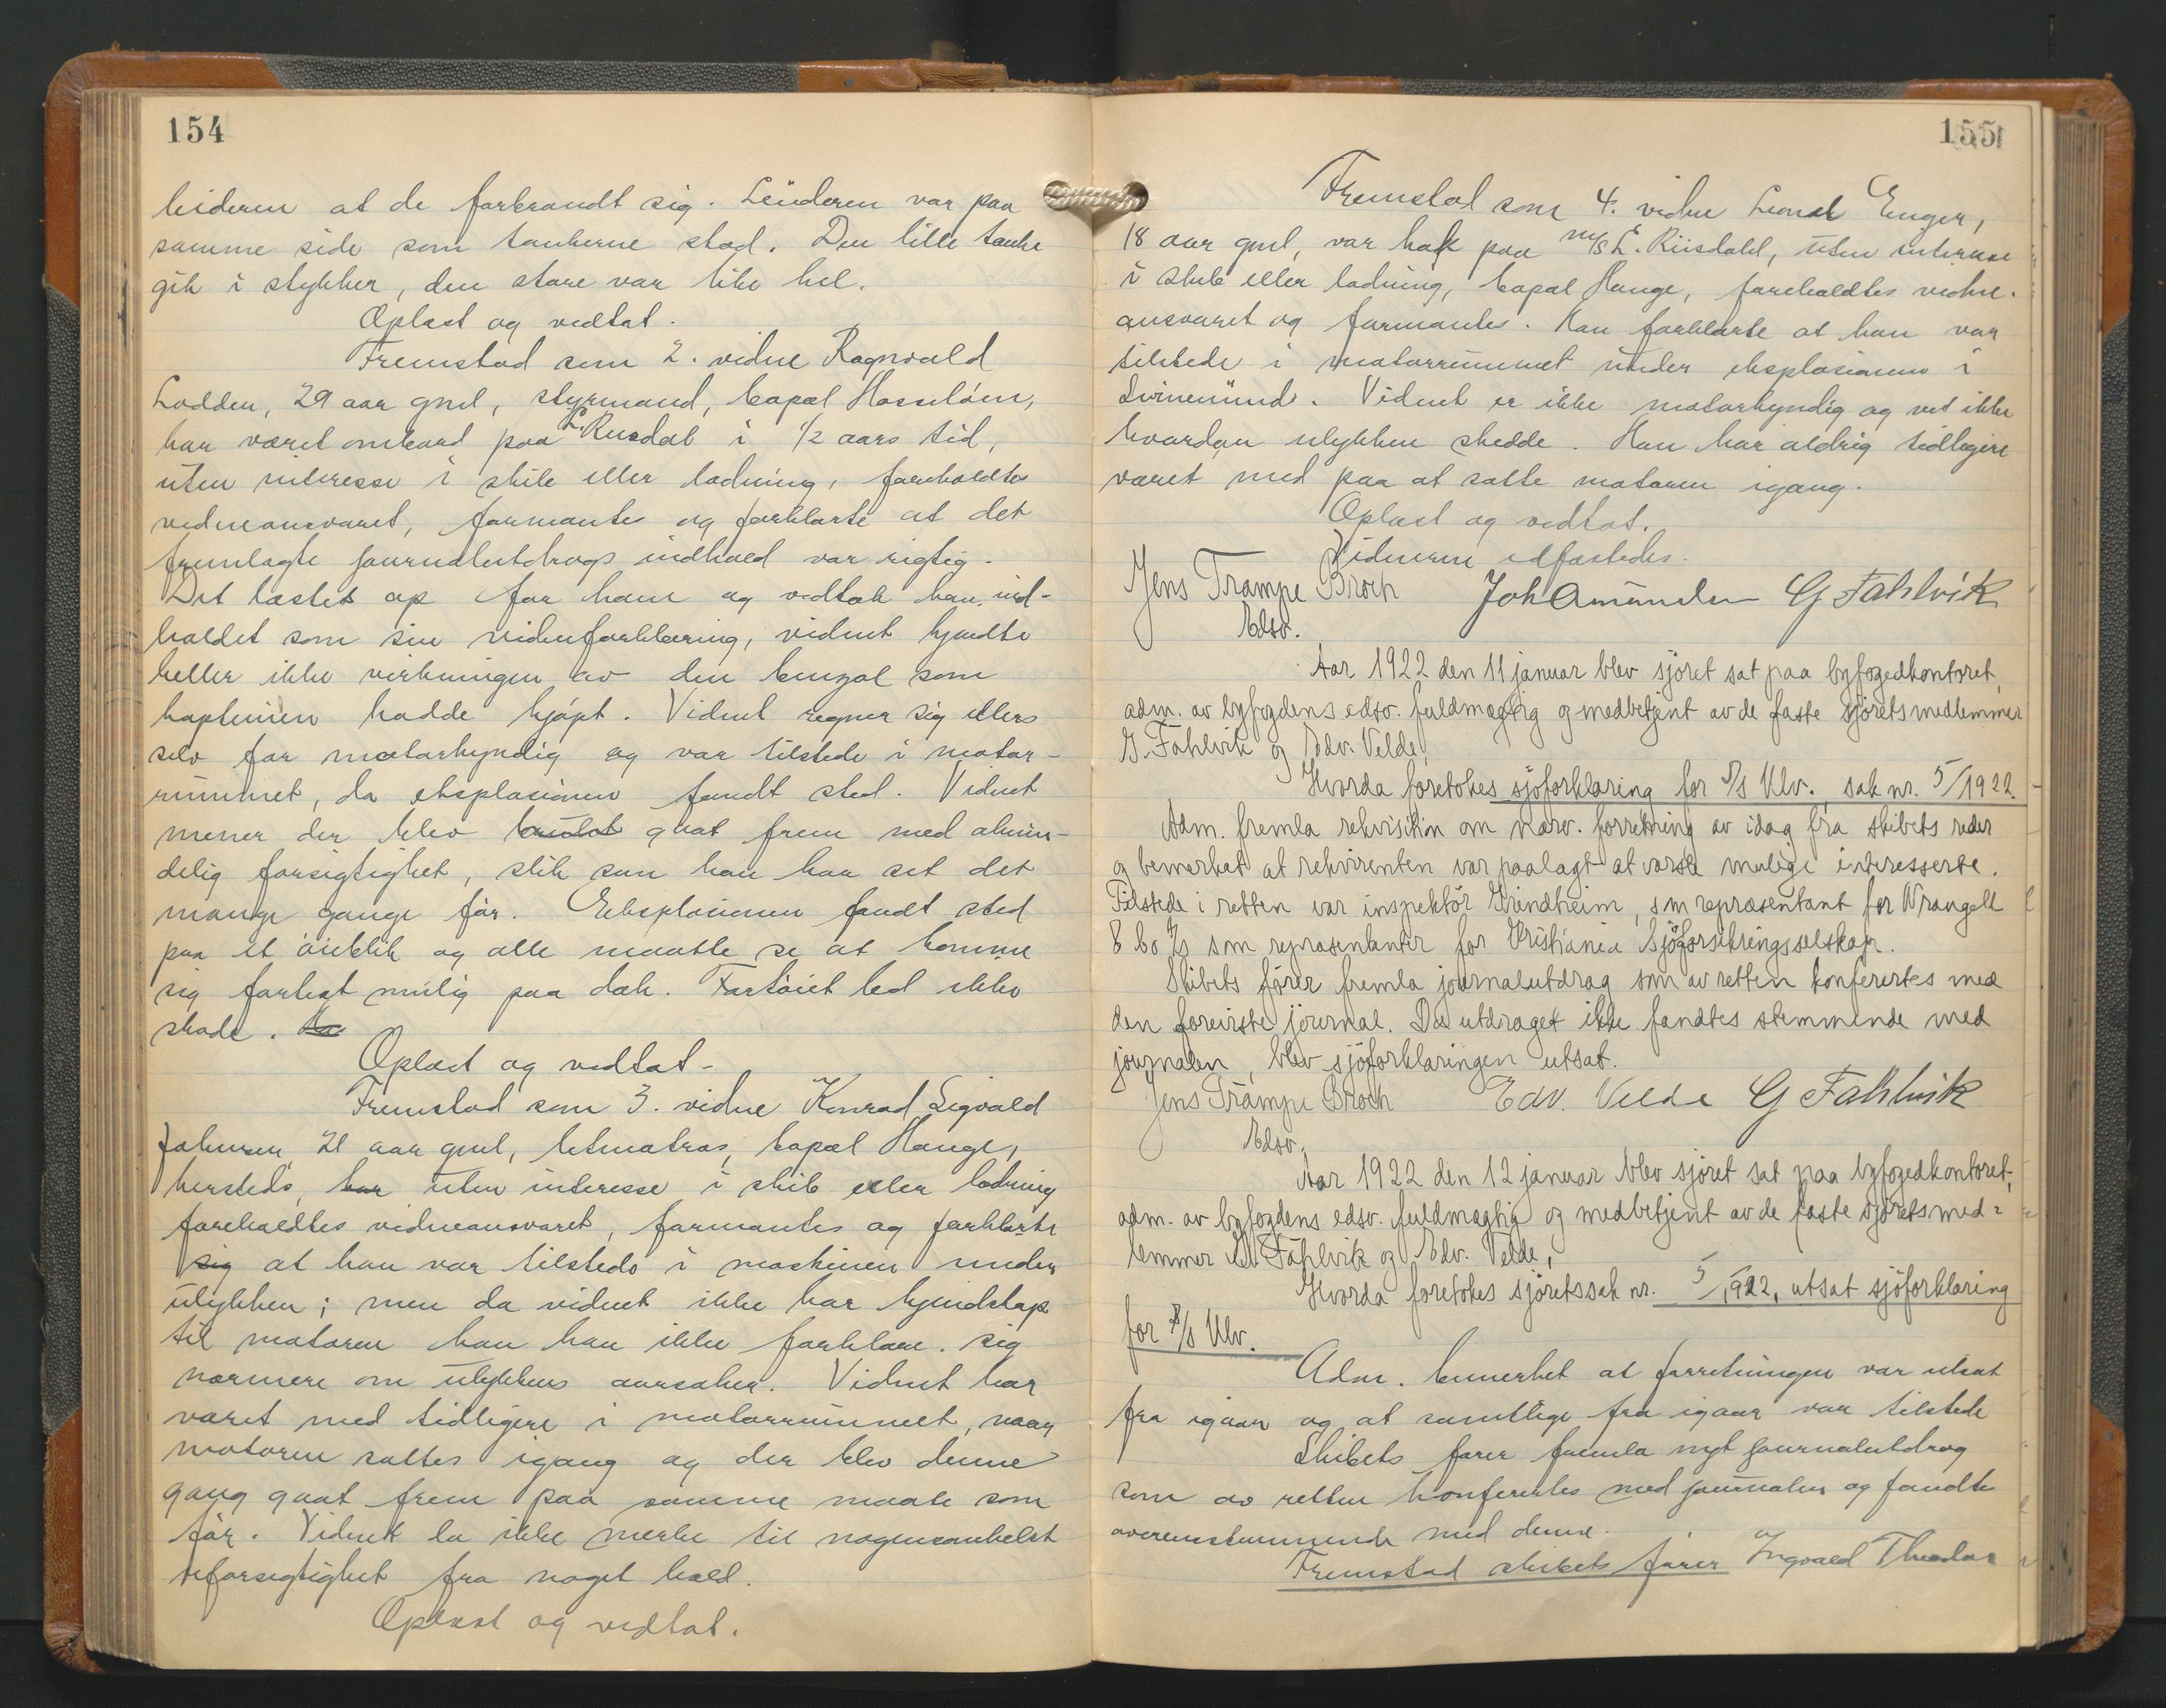 154
leideren at de forbrandt sig. Leideren var paa
samme side som tankerne stod. Den lille tanke
gik i stykker, den store var like hel.
Oplæst og vedtat.
Fremstod som 2. vidne Ragnvald
Lodden, 29 aar gml, styrmand, bopæl Hasseløen,
har været ombord paa L. Riisdal i 1/2 aars tid,
uten interesse i skib eller ladning, foreholdtes
vidneansvaret, formantes og forklarte at det
fremlagte journalutdrags indhold var rigtig.
Det læstes op for ham og vedtok han ind-
holdet som sin vidneforklaring, vidnet kjendte
heller ikke virkningen av den benzol som
kapteinen hadde kjøpt. Vidnet regner sig ellers
selv for motorkyndig og var tilstede i motor-
rummet, da eksplosionen fandt sted. Vidnet
mener der blev gaat frem med almin-
delig forsigtighet, slik som han har set det
mange gange før. Eksplosionen fandt sted
paa et øieblik og alle maatte se at komme
sig fortest mulig paa dæk. Fartøiet led ikke
skade.
Oplæst og vedtat.
Fremstod som 3. vidne Konrad Sigvald
Johnsen, 21 aar gml, letmatros, bopæl Hauge,
hersteds, har uten interesse i skib eller ladning
foreholdtes vidneansvaret, formantes og forklarte
sig at han var tilstede i maskinen under
ulykken; men da vidnet ikke har kjendskap
til motoren kan han ikke forklare sig
nærmere om ulykkens aarsaker. Vidnet har
været med tidligere i motorrummet, naar
motoren sattes igang og der blev denne
gang gaat frem paa samme maate som
før. Vidnet la ikke merke til nogensomhelst
uforsigtighet fra noget hold.
Oplæst og vedtat.
155
Fremstod som 4. vidne Leonal Enger,
18 aar gml, var kok paa m/s L. Riisdahl, uten interesse
i skib eller ladning, bopæl Hauge, foreholdtes vidne-
ansvaret og formantes. Han forklarte at han var
tilstede i motorrummet under eksplosionen i
Svinemünde. Vidnet er ikke motorkyndig og vet ikke
hvordan ulykken skedde. Han har aldrig tidligere
været med paa at sætte motoren igang.
Oplæst og vedtat.
Vidnerne edfæstedes.
Jens Trampe Broch Joh Amundsen G Fahlvik
Edsv.
Aar 1922 den 11 januar blev sjöret sat paa byfogedkontoret,
adm. av byfogdens edsv. fuldmægtig og medbetjent av de faste sjöretsmedlemmer
G. Fahlvik og Edv. Velde,
Hvorda foretokes sjöforklaring for s/s Ulv. sak nr. 5/1922.
Adm. fremla rekvisition om nærv. forretning av idag fra skibets reder
og bemerket at rekvirenten var paalagt at varsle mulige interesserte.
Tilstede i retten var inspektör Grindheim, som repræsentant for Wrangell
& Co A/s som repræsentanter for Kristiania Sjöforsikringsselskap.
Skibets förer fremla journalutdrag som av retten konferertes med
den foreviste journal. Da utdraget ikke fandtes stemmende med
journalen, blev sjöforklaringen utsat.
Jens Trampe Broch Edv. Velde G Fahlvik
Edsv.
Aar 1922 den 12 januar blev sjöret sat paa byfogedkontoret,
adm. av byfogdens edsv. fuldmægtig og medbetjent av de faste sjöretsmed-
lemmer Fahlvik og Edv. Velde,
Hvorda foretokes sjöretssak nr. 5/1922, utsat sjöforklaring
for s/s Ulv.
Adm. bemerket at forretningen var utsat
fra igaar og at samtlige fra igaar var tilstede
Skibets fører fremla nyt journalutdrag
som av retten konferertes med journalen og fandtes
overensstemmende med denne.
Fremstod skibets fører Ingvald Theodor